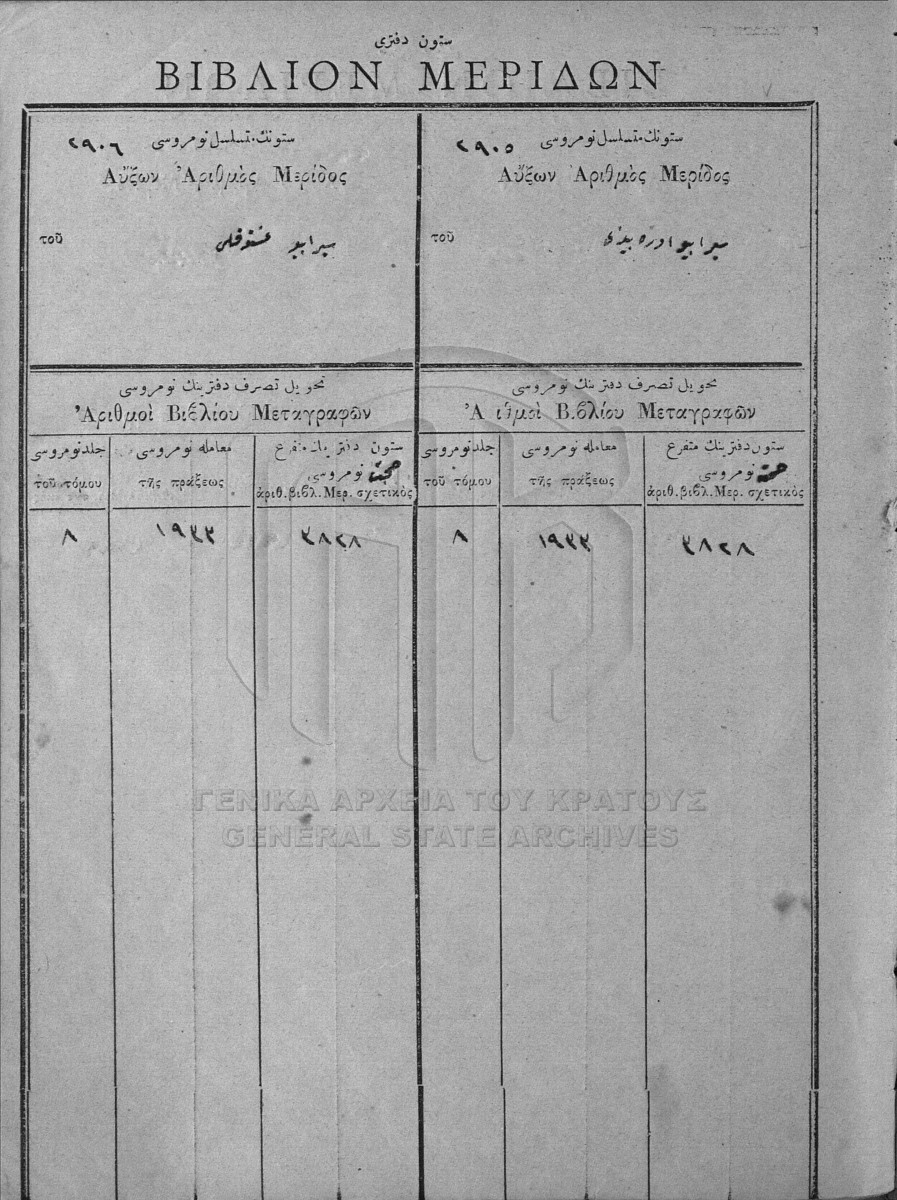 ستون دفتری
ΒΙΒΛΙΟΝ ΜΕΡΙΔΩΝ
ستونك تسلسل نومروسی ٢٩٠٥
Αὔξων Ἀριθμὸς Μερίδος
τοῦ
ستونك تسلسل نومروسی ٢٩٠٦
Αὔξων Ἀριθμὸς Μερίδος
τοῦ
تحویل تصرف دفترینك نومروسی
Ἀ ιθμοὶ Βιβλίου Μεταγραφῶν
ستون دفترینك متفرع
نومروسی
ἀριθ.βιβλ.Μερ. σχετικὸς
معامله نومروسی
τῆς πράξεως
جلد نومروسی
τοῦ τόμου
٣٨٢٨
١٩٣٣
٨
تحویل تصرف دفترینك نومروسی
Ἀριθμοὶ Βιβλίου Μεταγραφῶν
ستون دفترینك متفرع
نومروسی
ἀριθ.βιβλ.Μερ. σχετικὸς
معامله نومروسی
τῆς πράξεως
جلد نومروسی
τοῦ τόμου
٣٨٢٨
١٩٣٣
٨
ΓΕΝΙΚΑ ΑΡΧΕΙΑ ΤΟΥ ΚΡΑΤΟΥΣ
GENERAL STATE ARCHIVES